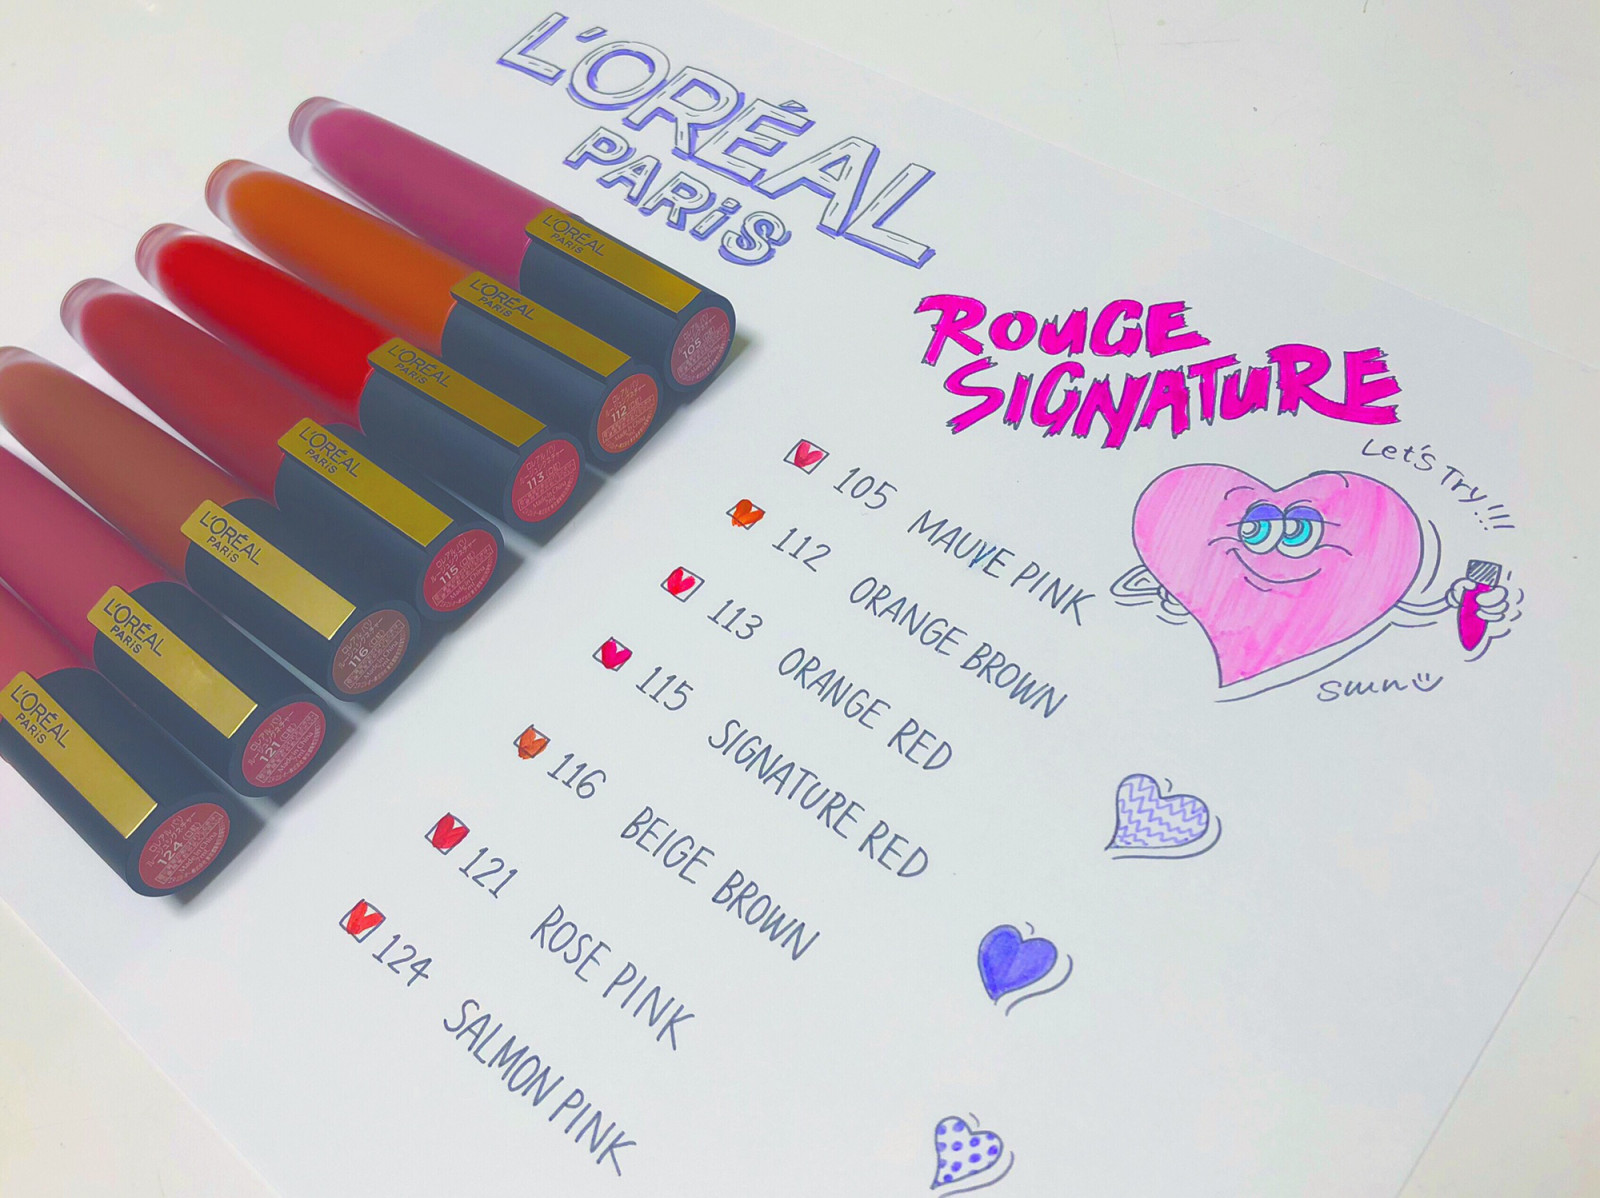 L'ORÉAL
PARiS
ROUGE
SIGNATURE
Let's Try!!!
105 MAUVE PINK
112 ORANGE BROWN
113 ORANGE RED
115 SIGNATURE RED
116 BEIGE BROWN
121 ROSE PINK
124 SALMON PINK
L'ORÉAL
PARIS
105
L'ORÉAL
PARIS
112
L'ORÉAL
PARIS
113
L'ORÉAL
PARIS
115
L'ORÉAL
PARIS
116
L'ORÉAL
PARIS
ロレアル パリ
121
L'ORÉAL
PARIS
ロレアル パリ
124